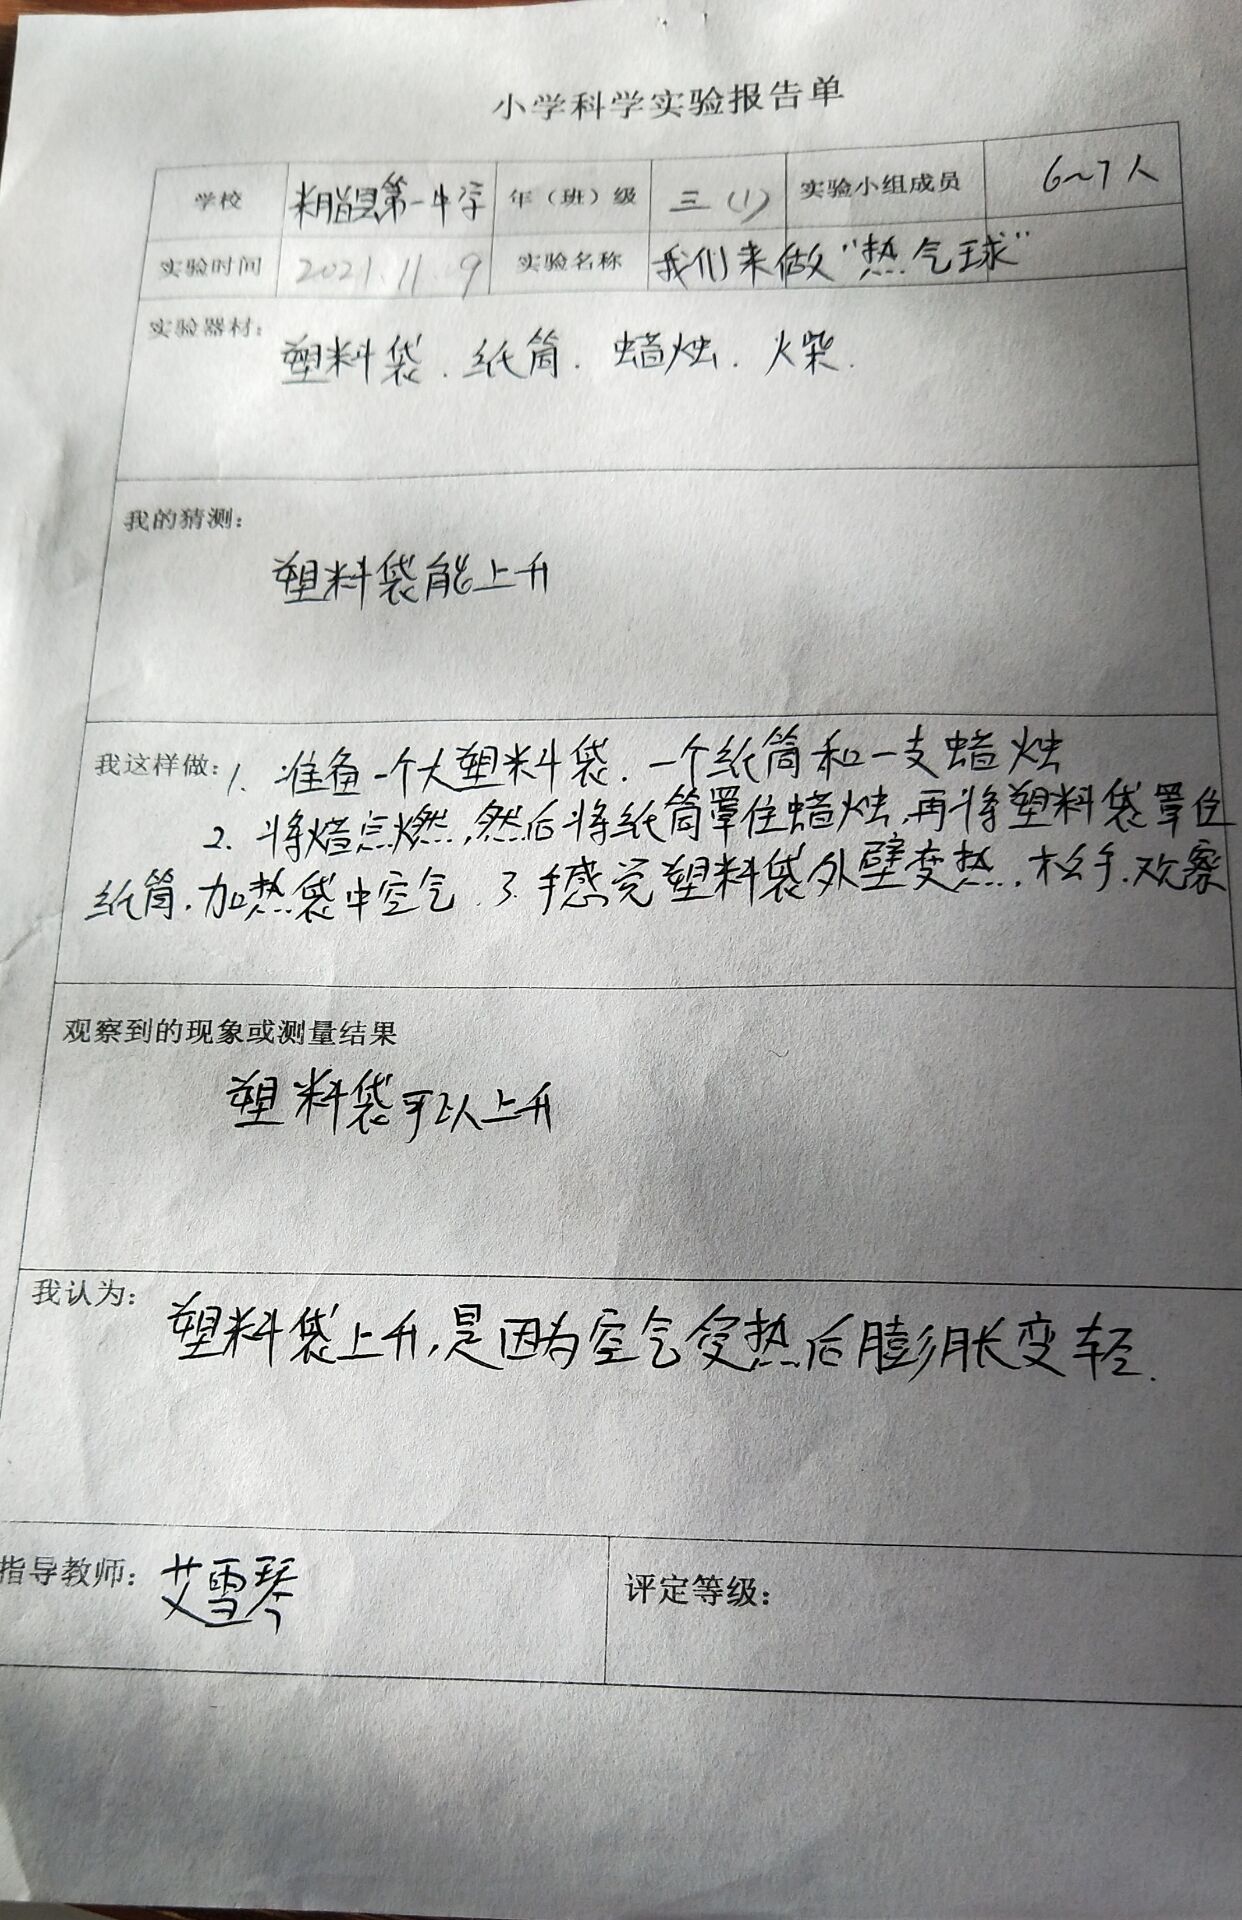 小学科学实验报告单
学校 米脂县第一中学 年（班）级 三（1） 实验小组成员 6~7人
实验时间 2021.11.9 实验名称 我们来做“热气球”
实验器材：
塑料袋．纸筒．蜡烛．火柴．
我的猜测：
塑料袋能上升
我这样做：1．准备一个大塑料袋．一个纸筒和一支蜡烛
2．将蜡点燃，然后将纸筒罩住蜡烛，再将塑料袋罩住
纸筒．加热袋中空气．3．手感觉塑料袋外壁变热．松手．观察
观察到的现象或测量结果
塑料袋可以上升
我认为：
塑料袋上升，是因为空气受热后膨胀变轻．
指导教师：艾雪琴 评定等级：